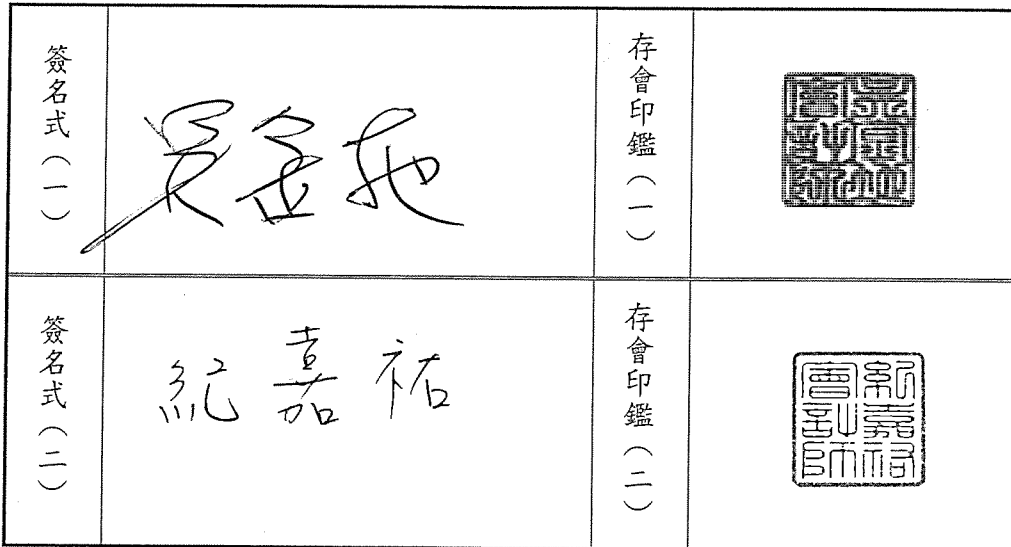 簽名式(一)
吳金地
存會印鑑(一)
吳金地
會計師
簽名式(二)
紀嘉祐
存會印鑑(二)
紀嘉祐
會計師